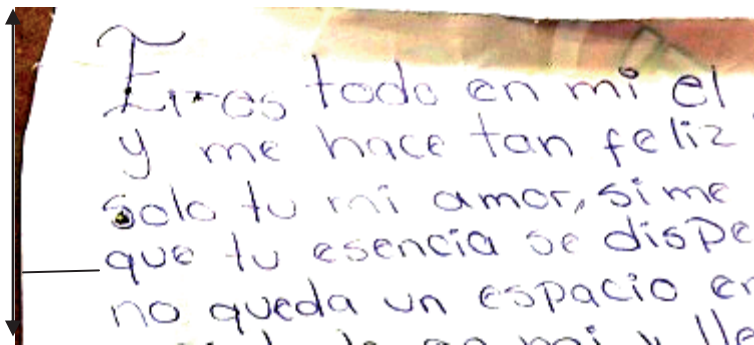 Eres todo en mi el
y me hace tan feliz
solo tu mi amor, si me
que tu esencia se dispe
no queda un espacio en
en mi y lle